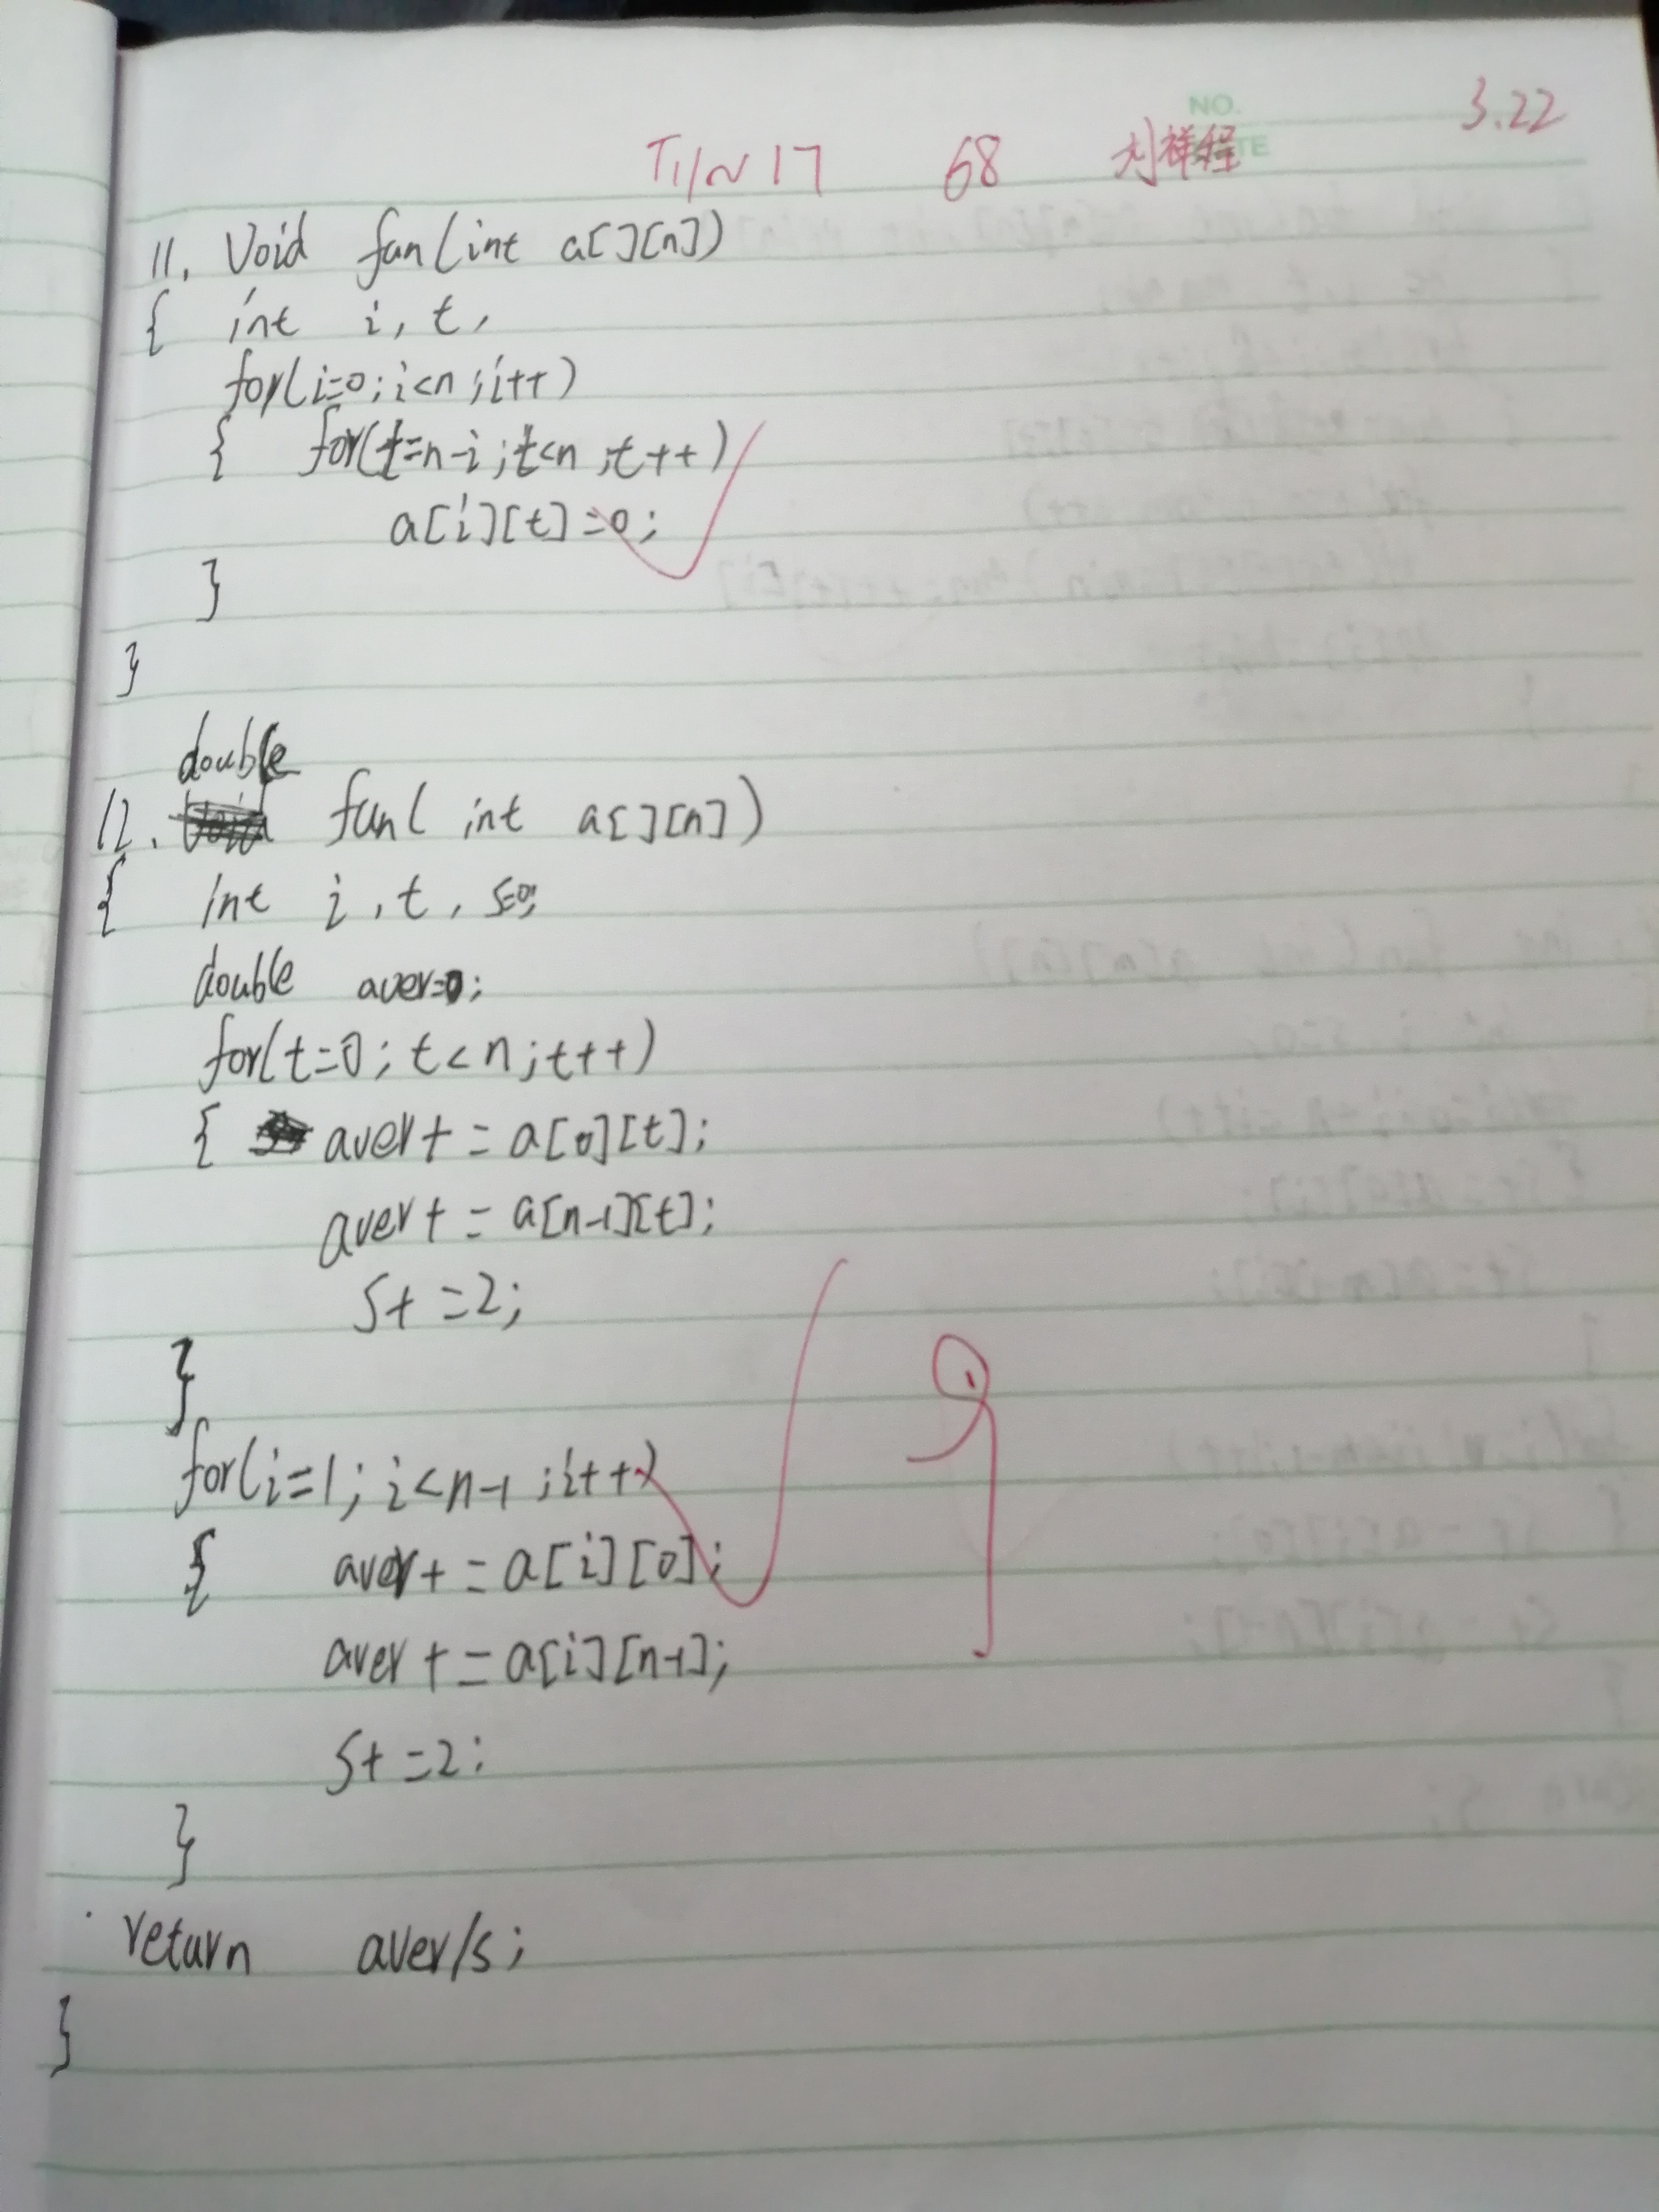 NO. 3.22
T11~17 68 刘祥程
11. Void fun(int a[][n])
{ int i, t,
for(i=0; i<n; i++)
{ for(t=n-i; t<n; t++)
a[i][t]=0;
}
}
double
12. fun( int a[][n])
{ int i, t, s=0;
double aver=0;
for(t=0; t<n; t++)
{ aver+=a[0][t];
aver+=a[n-1][t];
S+=2;
}
for(i=1; i<n-1; i++)
{ aver+=a[i][0];
aver+=a[i][n-1];
S+=2;
}
return aver/s;
}